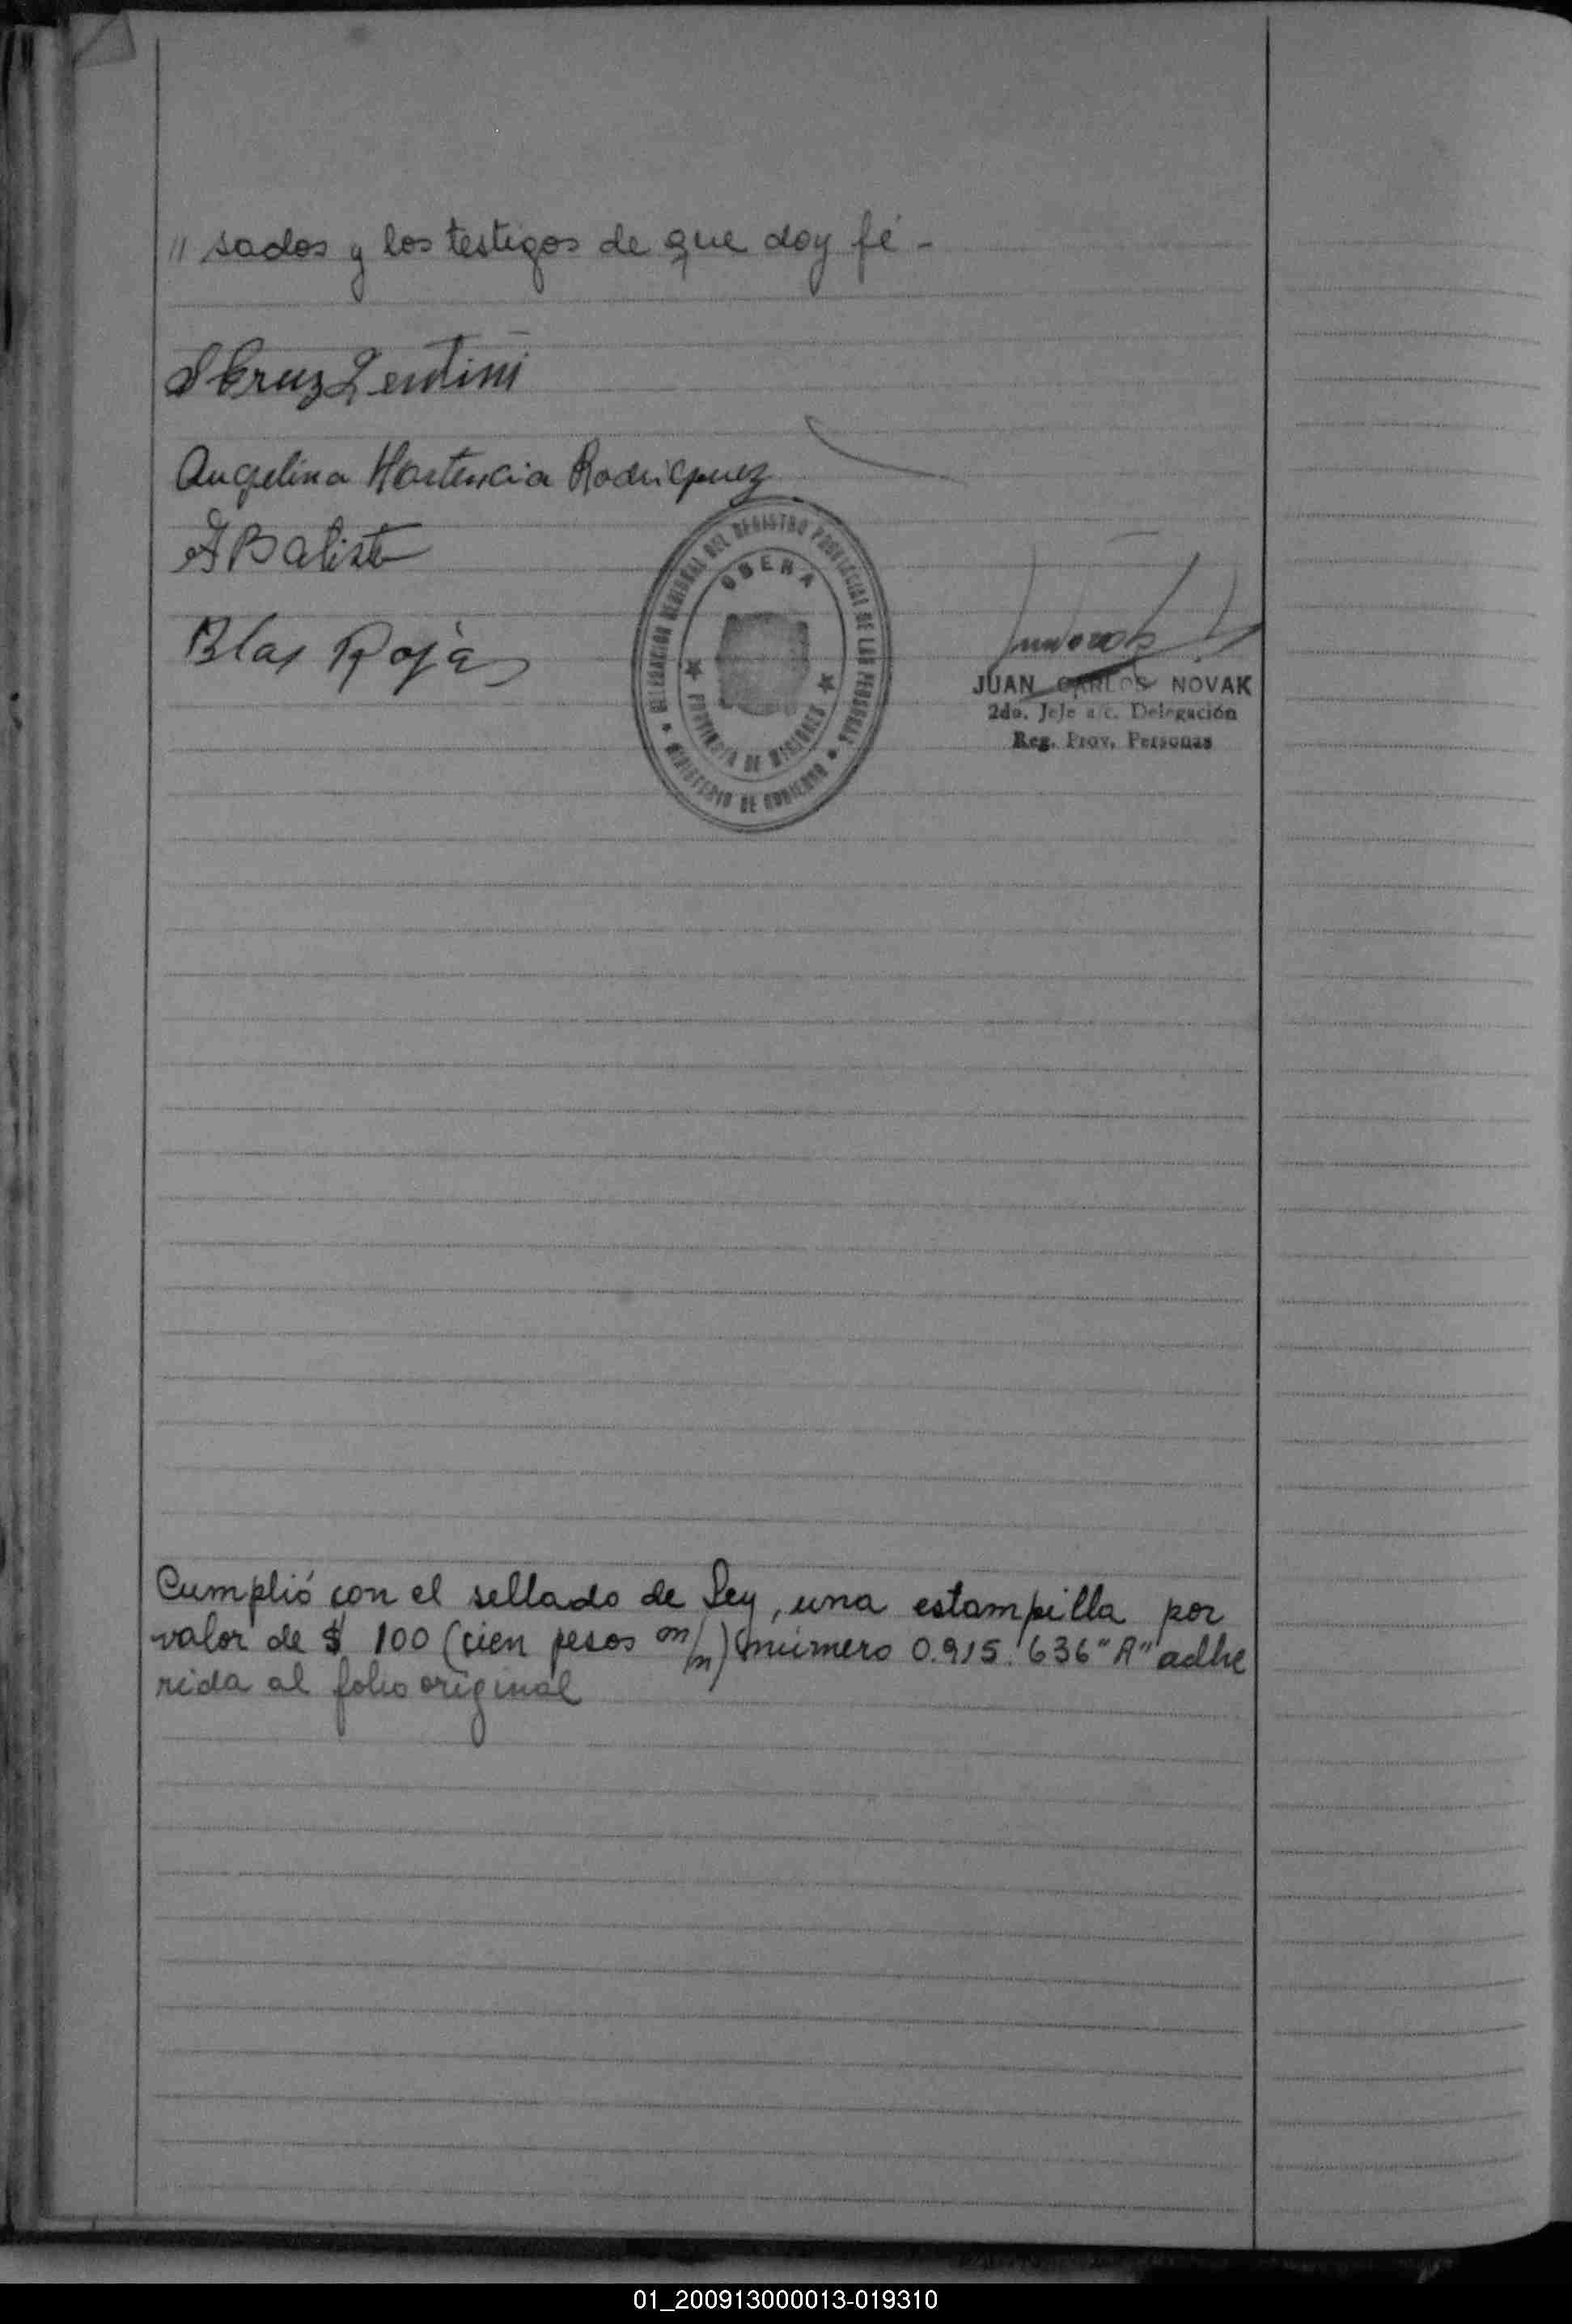 " sados y los testigos de que doy fé -
Cruz Lentini
Angelina Hortencia Rodriguez
Batista
Blas Rojas
DELEGACION REGIONAL DEL REGISTRO PROVINCIAL DE LAS PERSONAS
OBERA
PROVINCIA DE MISIONES
MINISTERIO DE GOBIERNO
JUAN CARLOS NOVAK
2do. Jefe a/c. Delegación
Reg. Prov. Personas
Cumplió con el sellado de Ley, una estampilla por
valor de $ 100 (cien pesos m/n) número 0.915.636 "A" adhe
rida al folio original
01_200913000013-019310